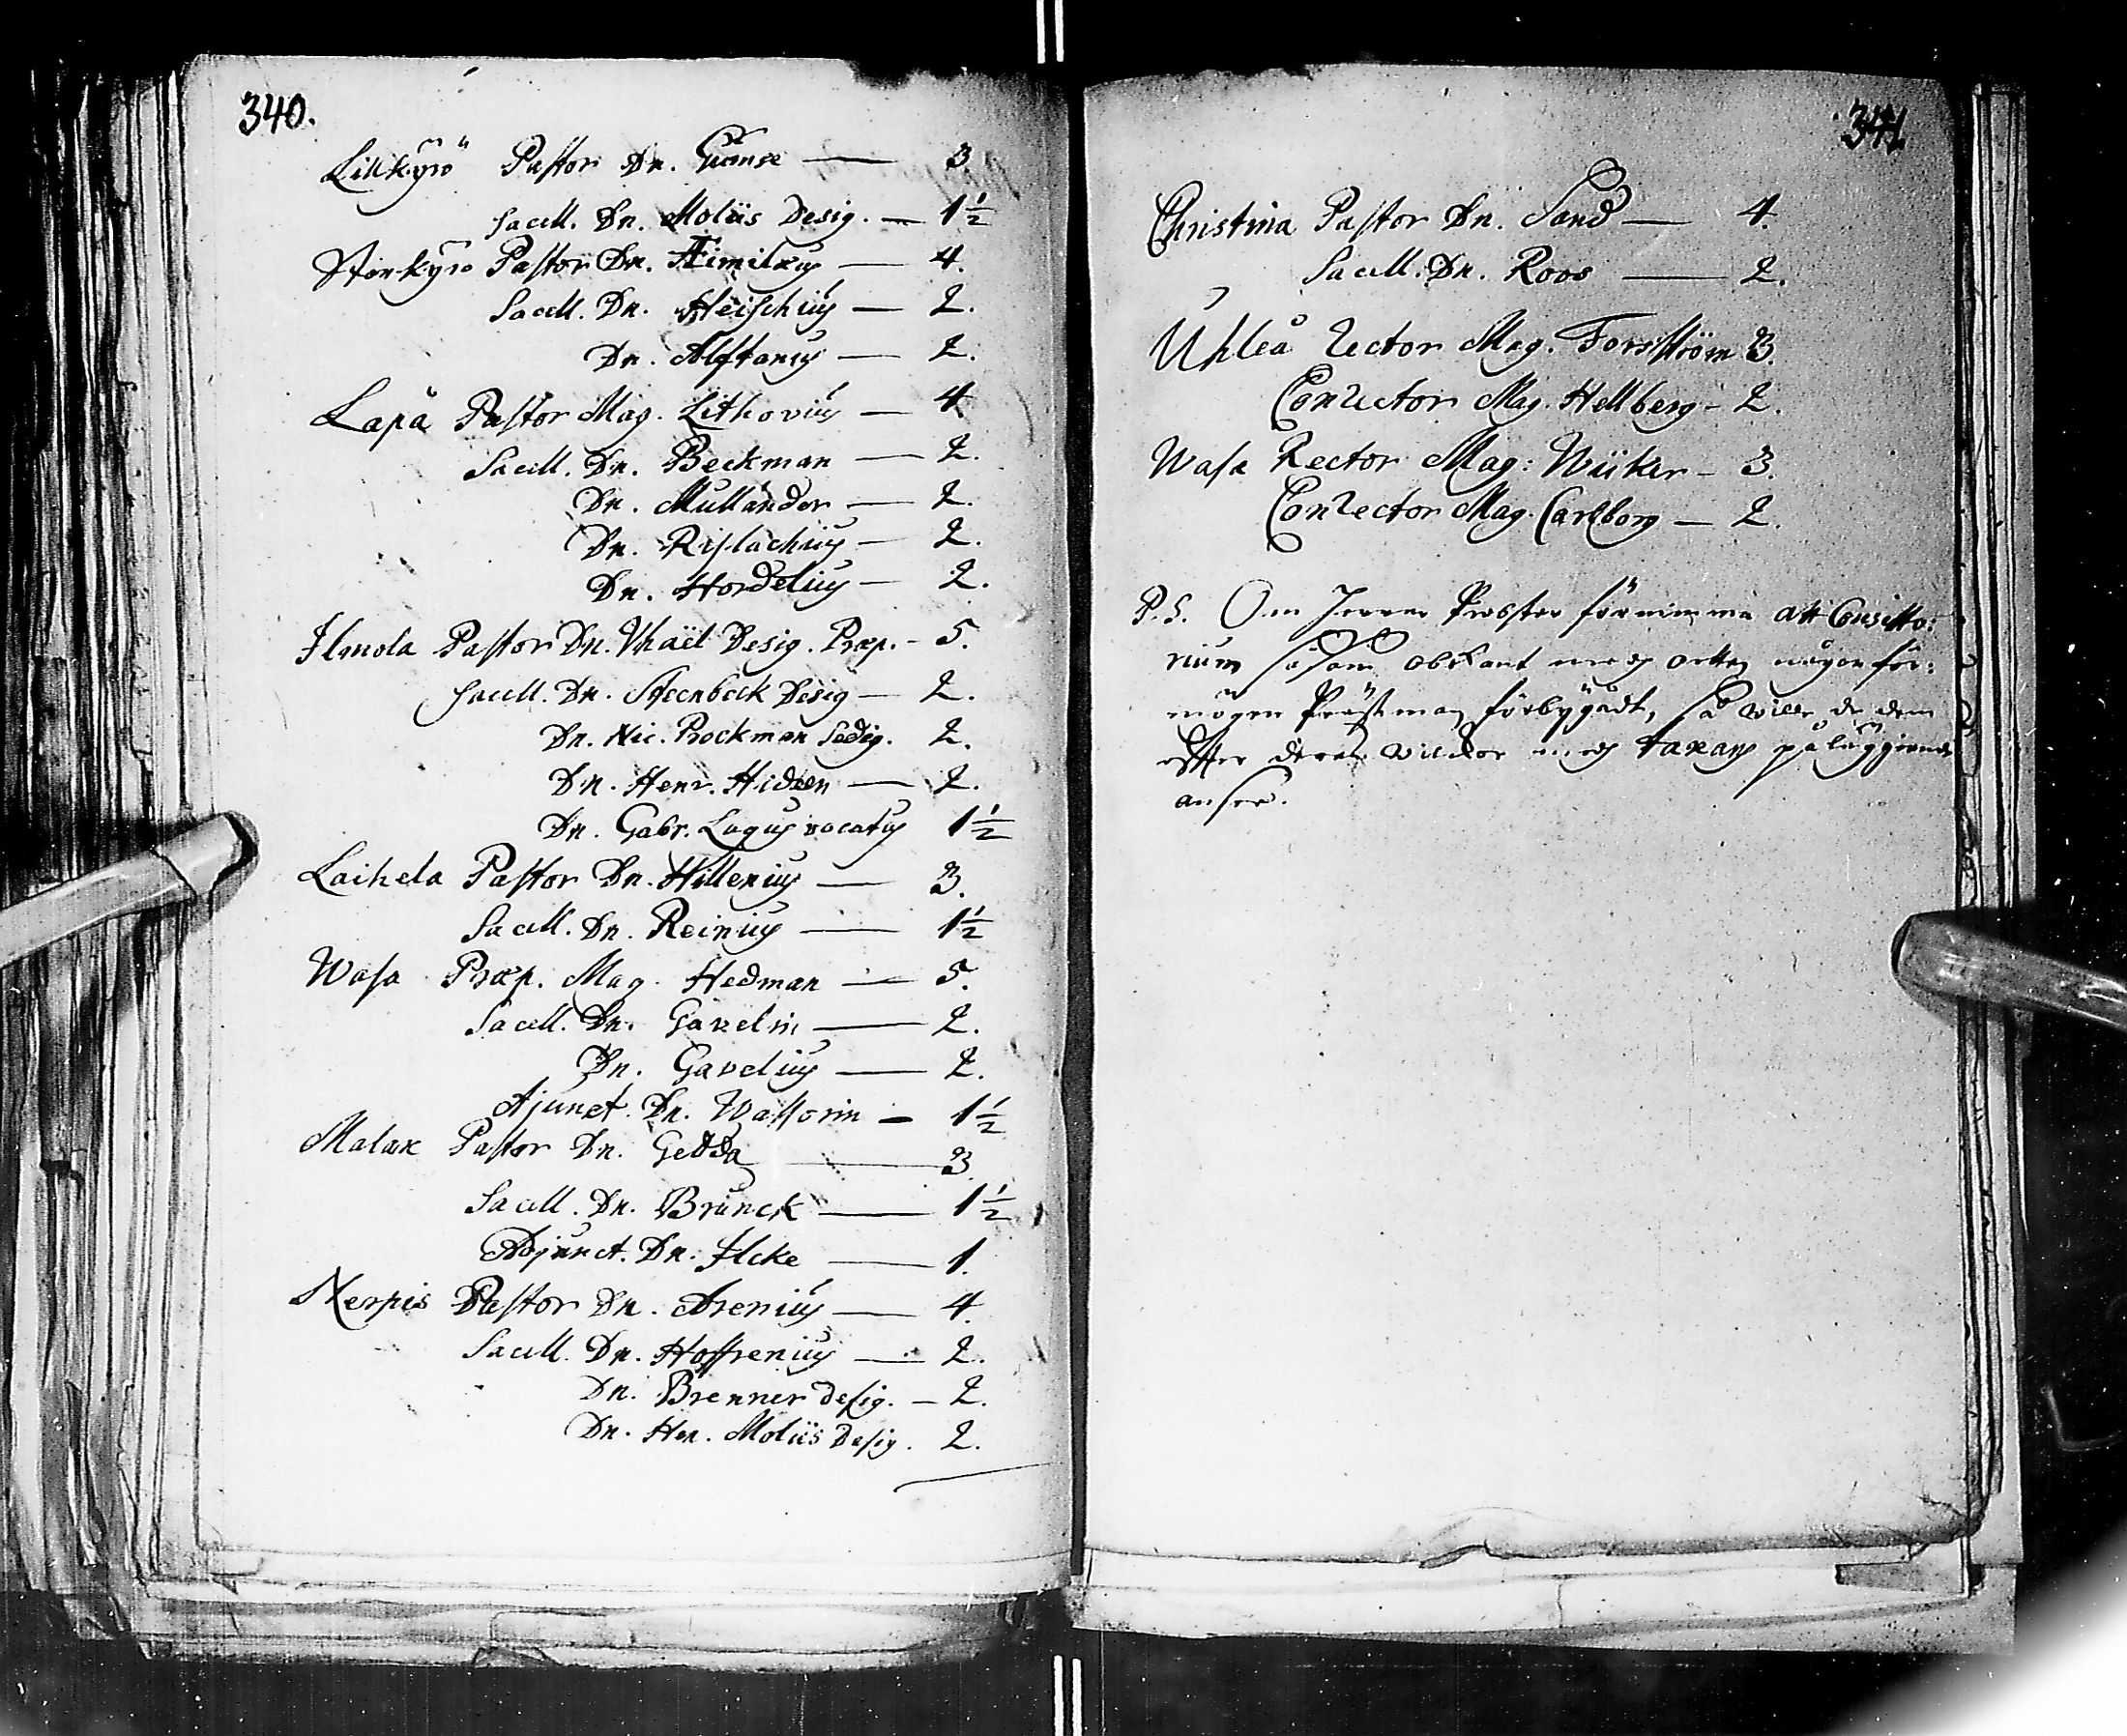 340.
Lillkyrö Pastor Dn. Gumse — 3
Sacell. Dn. Moliis Desig. — 1½
Storkyro Pastor Dn. Aimilæus — 4.
Sacell. Dn. Heischius — 2.
Dn. Alftanus — 2.
Lapå Pastor Mag. Lithovius — 4
Sacell. Dn. Beckman — 2.
Dn. Mullander — 2.
Dn. Rislachius — 2.
Dn. Hordelius — 2.
Ilmola Pastor Dn. Vhaël Desig. Præp. - 5.
Sacell. Dn. Steenbeck Desig — 2.
Dn. Nic. Prockman 2.
Dn. Henr. Hideen — 2.
Dn. Gabr. Lagus vocatus 1½
Laihela Pastor Dn. Hillenius — 3.
Sacell. Dn. Reinius — 1½
Wasa Præp. Mag. Hedman — 5.
Sacell. Dn. Gavelin — 2.
Dn. Gavelius — 2.
Ajunct. Dn. Wassorin — 1½
Malax Pastor Dn. Gedda — 3.
Sacell. Dn. Brunck — 1½
Adjunct. Dn. Ilcke — 1.
Nerpis Pastor Dn. Arenius — 4.
Sacell. Dn. Hoffrenius — 2.
Dn. Brenner desig. — 2.
Dn. Hen. Moliis Desig. 2.
341.
Christina Pastor Dn. Sand — 4.
Sacell. Dn. Roos — 2.
Uhleå Rector Mag. Forsström 3.
Conrector Mag. Hellberg - 2.
Wasa Rector Mag: Wiiker - 3.
Conrector Mag. Carlborg — 2.
P.S. Om Herrar Probster förnimma att Consisto:
rium såsom obekant med orten någon för:
mögen Prästman förbygådt, så wille de dem
effter deras wilckor med taxans påläggiande
ansee.